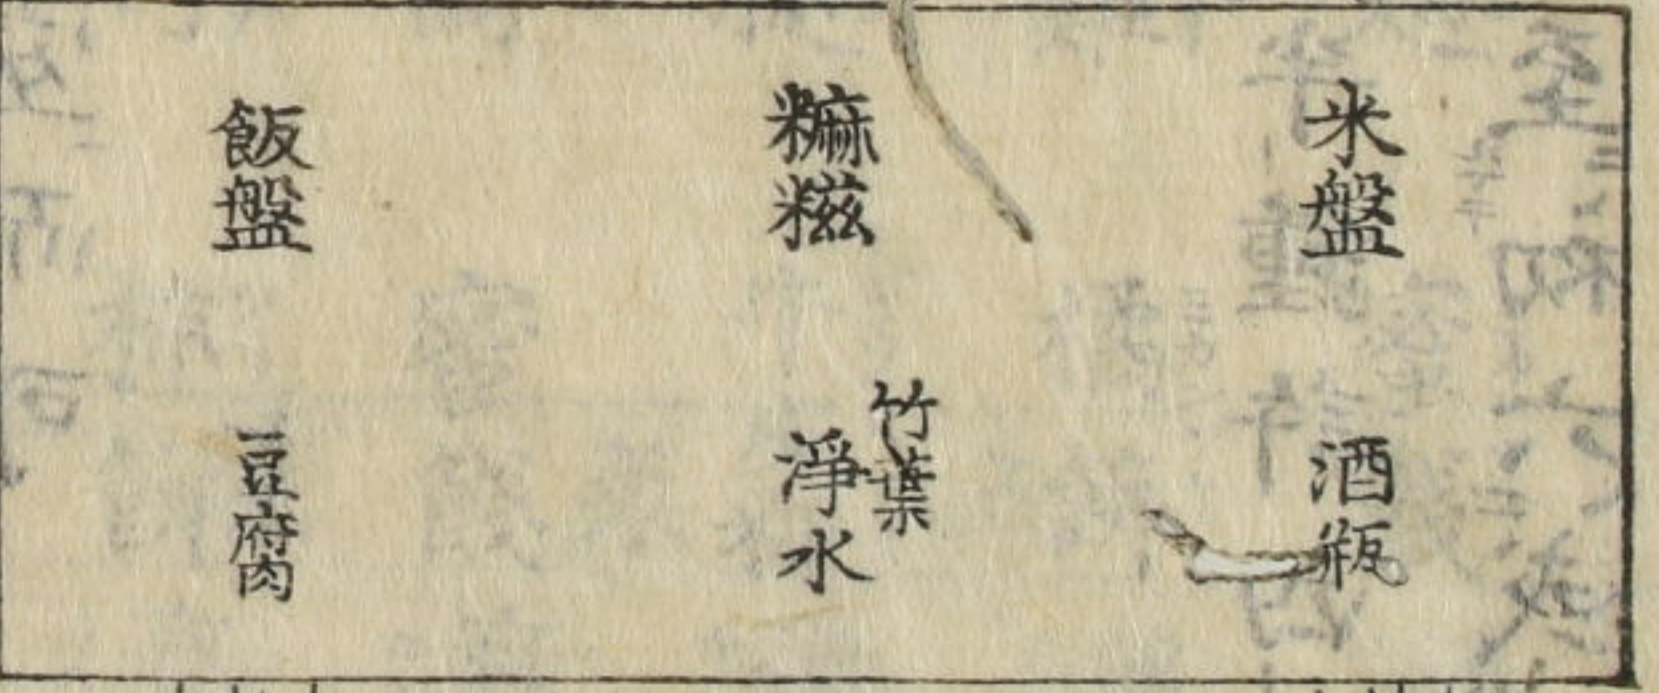 米盤
酒瓶
糆糍
竹葉
淨水
飯盤
豆腐